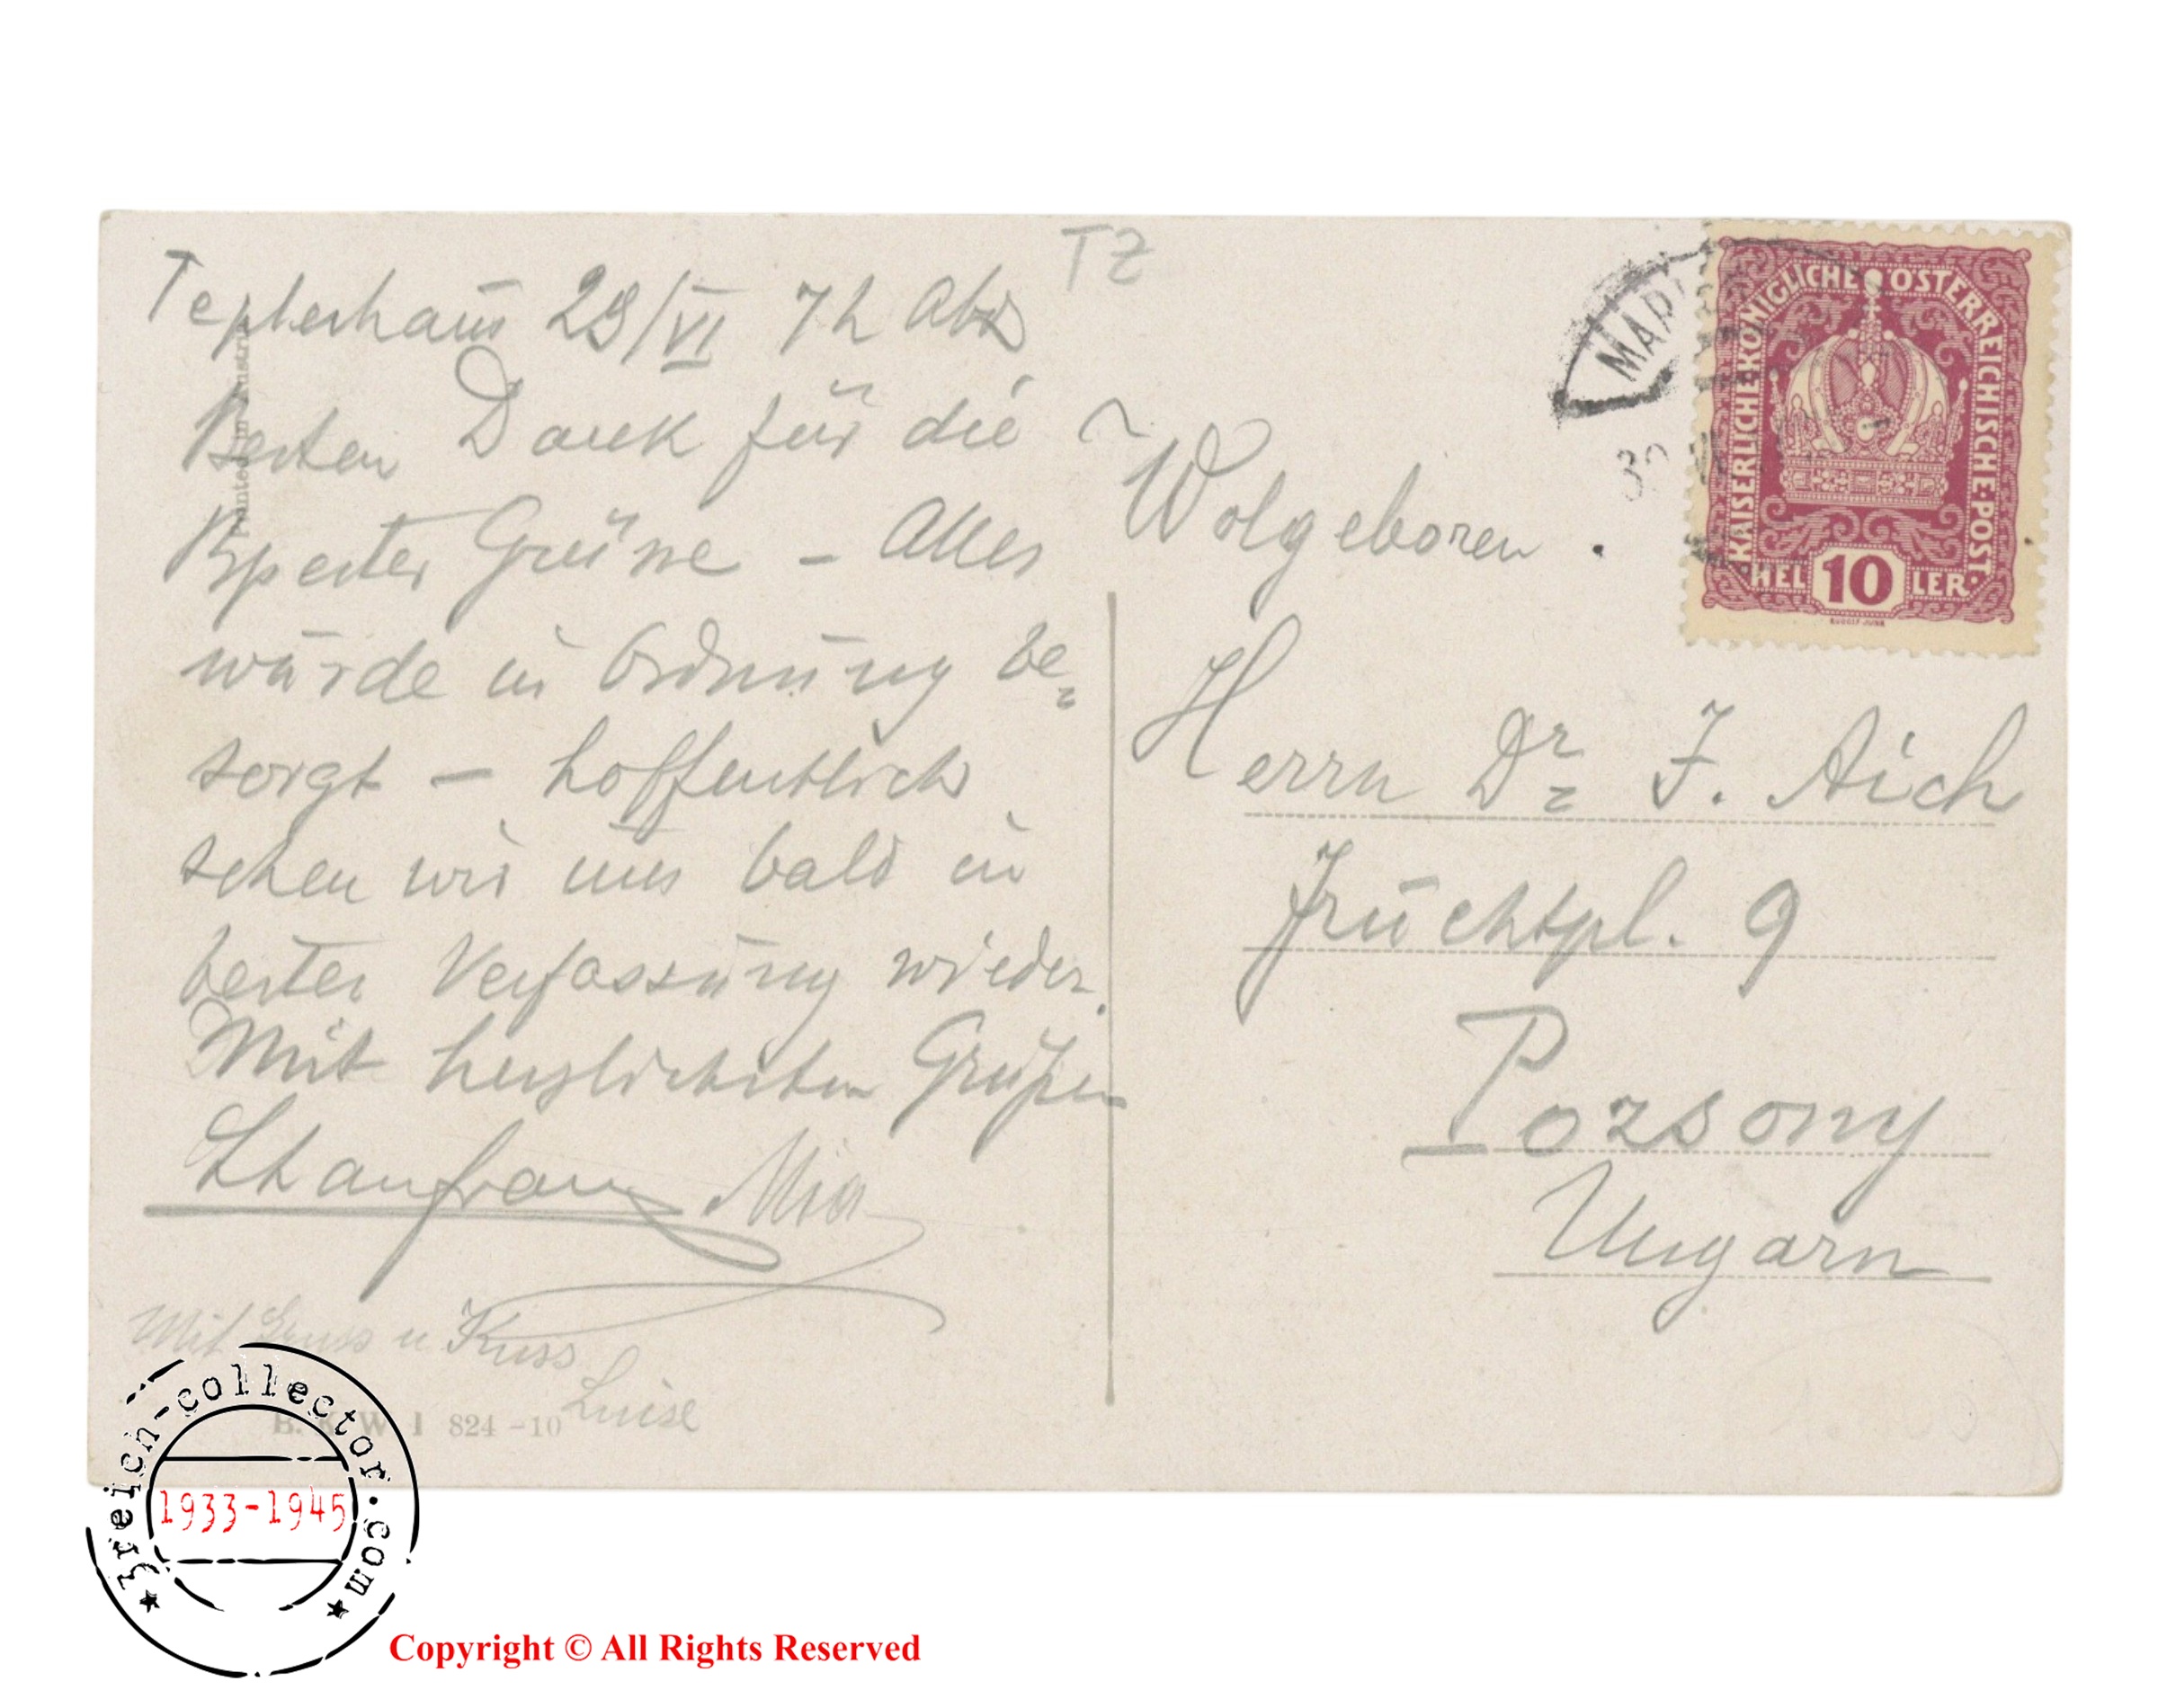 TZ
Teplerhaus 29/VI 7h Abds
Besten Dank für die
Grüsse - Alles
würde in Ordnung be=
sorgt - hoffentlich
sehen wir uns bald in
bester Verfassung wieder.
Mit herzlichsten Grüßen
Mia
Mit Gruss u Kuss
Luise
B.K.W.I 824-10
Printed in Austria
Wolgeboren.
Herrn Dr. J. Aich
Früchtpl. 9
Pozsony
Ungarn
MAR
30 VI
KAISERLICHE KÖNIGLICHE ÖSTERREICHISCHE POST.
HEL 10 LER.
RUDOLF JUNK
3reich-collector.com
1933-1945
Copyright © All Rights Reserved